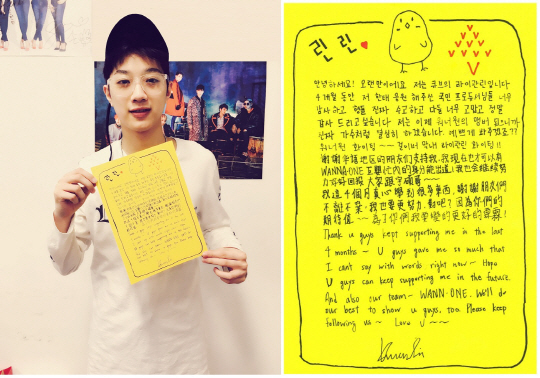 린린
안녕하세요! 오랜만이에요 저는 큐브의 라이관린입니다
4개월 동안 저 한테 응원 해주신 국민 프로듀서님들 너무
감사 하고 형들 진짜 수고하고 다들 너무 고맙고 정말
감사 드리고 싶습니다 저는 이제 워너원의 멤버 되니까
진짜 가수처럼 열심히 하겠습니다. 예쁘게 봐주겠죠??
워너원 화이팅 ~~ 막내 라이관린 화이팅!!
謝謝 地區的朋友們支持我,我現在也才可以有
WANNA·ONE 我也會繼續努
力 好好回報 大家
我這4個月真心 學到很多東西, 謝謝朋友們
不離不棄, 我也要更努力, 對吧? 因為你們的
期待值 ~~ 為了你們我要變的更好的
Thank u guys kept supporting me in the last
4 months ~ U guys gave me so much that
I cant say with words right now ~ Hope
U guys can keep supporting me in the future.
And also our team ~ WANN·ONE. We'll do
our best to show u guys, too. Please keep
following us ~ Love U ~~